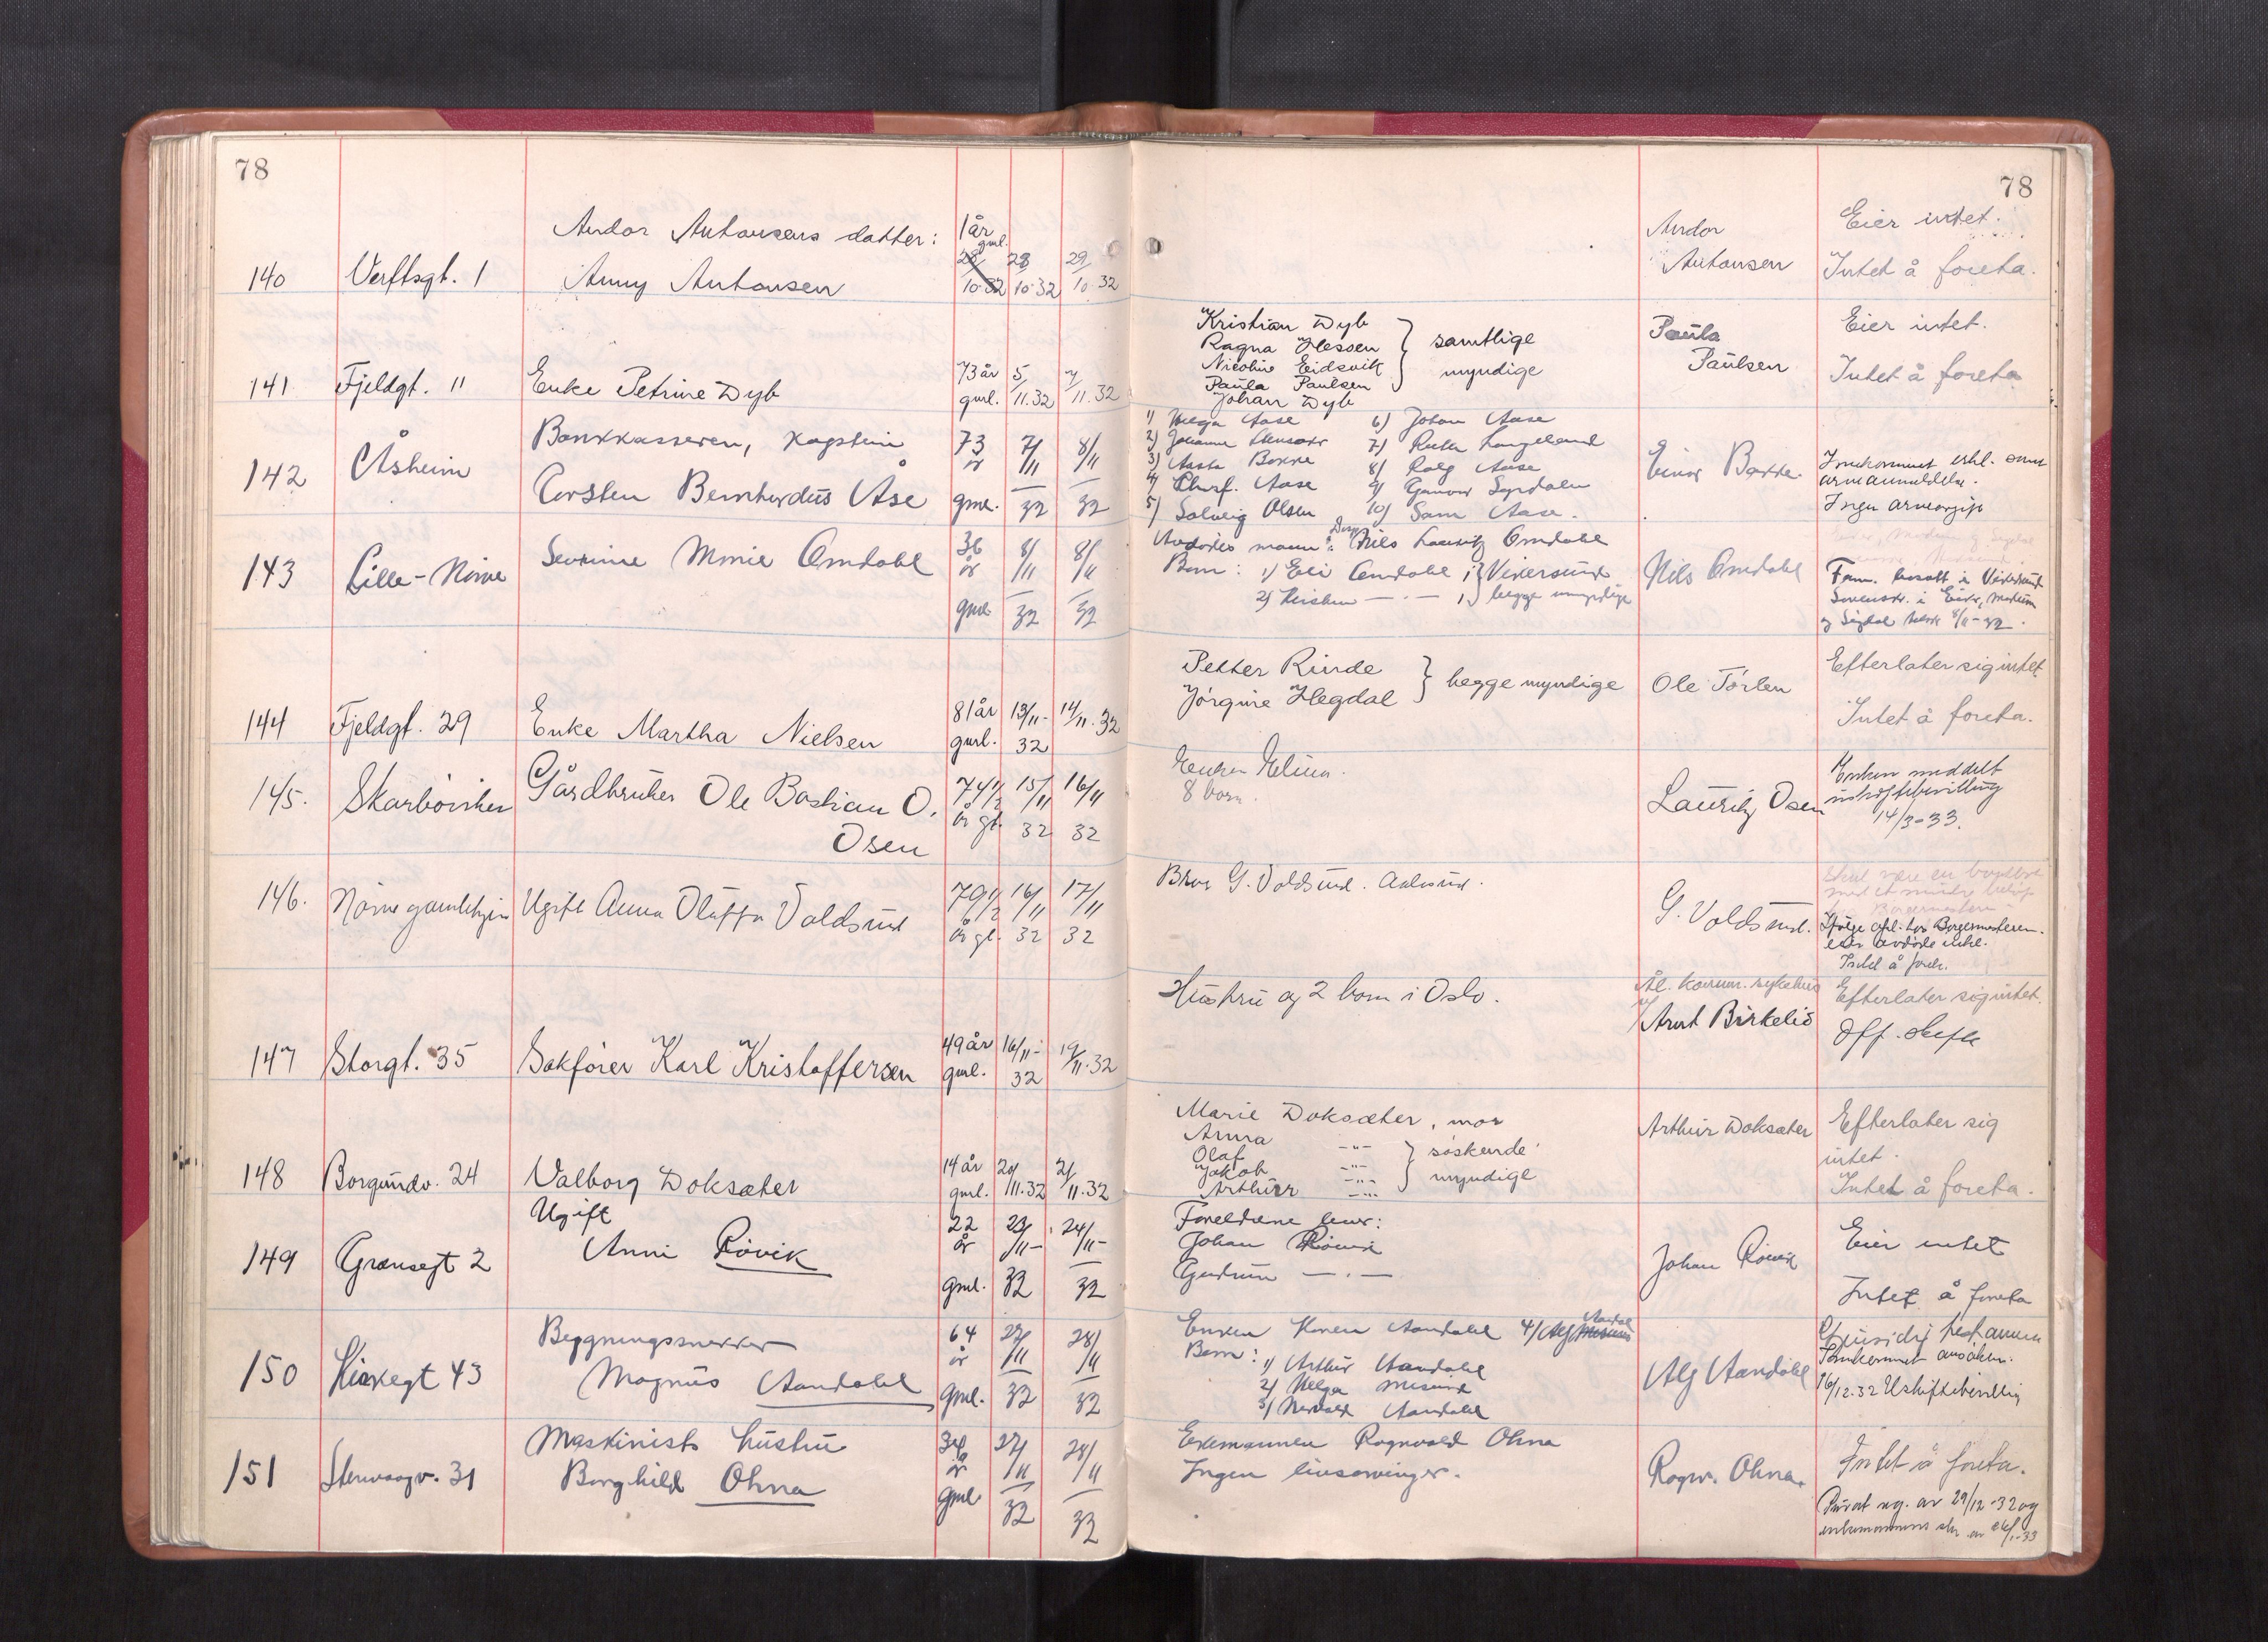 78
78
Andor Antonsens datter:
1 år gml.
28/10.32
28/10.32
29/10.32
140 Verftsgt. 1 Anny Antonsen
Andor
Antonsen
Eier intet.
Intet å foreta.
141 Fjeldgt. 11 Enke Petrine Dyb
73 år gml.
5/11.32
7/11.32
Kristian Dyb
Ragna Hessen
Nicoline Eidsvik
Paula Paulsen
Johan Dyb
samtlige
myndige
Paula
Paulsen
Eier intet.
Intet å foreta
142 Åsheim
Bankkasserer, kaptein
Torsten Bernhardus Åse
73 år gml.
7/11 32
8/11 32
1) Helga Aase
2) Johanne
3) Aasta Bakke
4) Aase
5) Solveig Olsen
6) Johan Aase
7) Ruth Langeland
8) Rolf Aase
9) Gunvor
10) Aase.
Einar Bakke.
Innkommet erkl. om
arveanmeldelse.
Ingen arveavgift
143 Lille-Nørve Severine Marie Omdahl
36 år gml.
8/11 32
8/11 32
Avdødes mann: Nils Lauritz Omdahl
Barn: 1) Eli Omdahl } Vikersund
2) Kirsten —"— } begge umyndige
Nils Omdahl
Fam. bosatt i Vikersund
Sorenskr. i Eiker, Modum
og Sigdal 8/11-32.
144 Fjeldgt. 29 Enke Martha Nielsen
81 år gml.
13/11-32
14/11.32
Petter Rinde
Jørgine Hegdal
begge myndige
Ole Tørlen
Efterlater sig intet
Intet å foreta.
145. Skarbøviken Gårdbruker Ole Bastian O.
Osen
74 1/2 år gl.
15/11 32
16/11 32
Enken Elina.
8 barn.
Lauritz Osen
Enken meddelt
uskiftebevilling
14/3-33.
146. Nørve gamlehjem Ugift Anna Oluffa Voldsund
79 1/2 år gl.
16/11 32
17/11 32
Bror G. Voldsund. Aalesund.
G. Voldsund.
Ifølge opl. hos Borgermesteren.
eier avdøde intet.
Intet å foreta.
147 Storgt. 35 Sakfører Karl Kristoffersen
49 år gml.
16/11-32
19/11.32
Hustru og 2 barn i Oslo.
Ål. komm. sykehus
v/ Arnt Birkelid
Efterlater sig intet.
Off. skifte
148 Borgundv. 24 Valborg Doksæter
14 år gml.
20/11.32
21/11.32
Marie Doksæter, mor
Anna —"—
Olaf —"—
Jakob —"—
Arthur —"—
søskende
myndige
Arthur Doksæter
Efterlater sig
intet.
Intet å foreta.
149 Grensegt 2
Ugift
Anni Røvik
22 år gml.
23/11-32
24/11-32
Foreldrene lever:
Johan Røvik
Gudrun —"—
Johan Røvik
Eier intet
Intet å foreta
150 Kirkegt 43
Bygningssnekker
Magnus Aandahl
64 år gml.
27/11 32
28/11 32
Enken Karen Aandahl 4) Alf Aandahl
Barn: 1) Arthur Aandahl
2) Helga Misund
3) Aandahl
Alf Aandahl
Innkommet ansøkn.
16/12-32 Uskiftebevilling
151 Stenvaagv. 31
Maskinists hustru
Borghild Ohna
34 år gml.
27/11 32
28/11 32
Ektemannen Ragnvald Ohna
Ingen livsarvinger.
Ragnv. Ohna.
Intet å foreta.
Privat reg. av 29/12-32 og
enkemannens skr. av 24/1-33